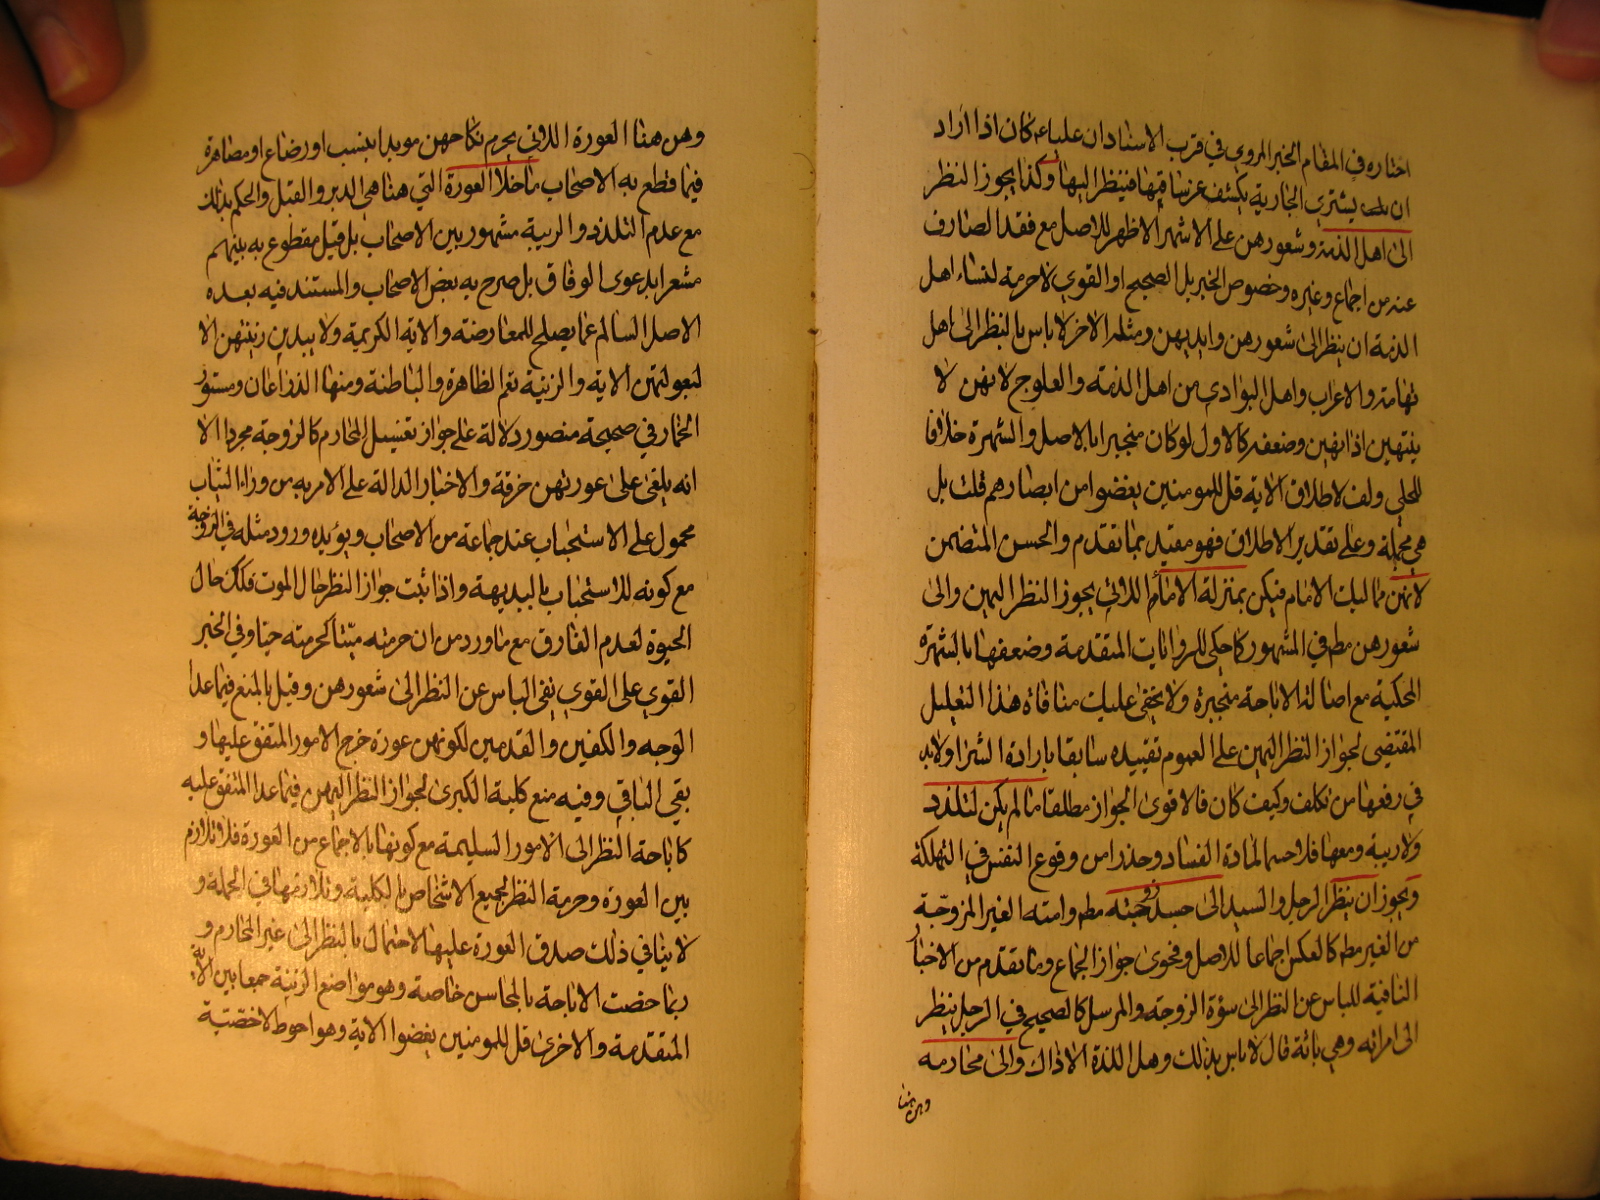 اختاره في المقام الخبر المروي في قرب الاسناد ان عليا ع كان اذا اراد
ان يشتري الجارية يكشف عن ساقيها فينظر اليها وكذا يجوز النظر
الى اهل الذمة وشعورهن على الاشهر الاظهر للاصل مع فقد الصارف
عنه من اجماع وغيره وخصوص الخبر بل الصحيح او القوي لا حرمة لنساء اهل
الذمة ان ينظر الى شعورهن وايديهن ومثله الاخر لا باس بالنظر الى اهل
تهامة والاعراب واهل البوادي من اهل الذمة والعلوج لانهن لا
ينتهين اذا نهين وضعفه كالاول لو كان منجبر بالاصل والشهرة خلافا
للحلي ولف لاطلاق الاية قل للمومنين يغضوا من ابصارهم قلت بل
هي مجملة وعلى تقدير الاطلاق فهو مقيد بما تقدم والحسن المتضمن
لانهن مماليك الامام فيكن بمنزلة الاماء اللاتي يجوز النظر اليهن والى
شعورهن مطم في المشهور كما حكي للروايات المتقدمة وضعفها بالشهرة
المحكية مع اصالة الاباحة منجبرة ولا يخفى عليك منافاة هذا التعليل
المقتضي لجواز النظر اليهن على العموم تقييده سابقا بارادة الشراء ولا بد
في رفعها من تكلف وكيف كان فالاقوى الجواز مطلقا ما لم يكن لتلذذ
ولا ريبة ومعها فلا حسما لمادة الفساد وحذرا من وقوع النفس في التهلكة
ويجوز ان ينظر الرجل والسيد الى جسد زوجته مطم وامته الغير المزوجة
من الغير مطم كالعكس اجماعا للاصل وفحوى جواز الجماع وما تقدم من الاخبار
النافية للباس عن النظر الى سؤة الزوجة والمرسل كالصحيح في الرجل ينظر
الى امراته وهي عريانة قال لا باس بذلك وهل اللذة الا ذاك والى محارمه
وهن هنا
وهن هنا العورة اللاتي يحرم نكاحهن مويدا بنسب او رضاع او مصاهرة
فيما قطع به الاصحاب ما خلا العورة التي هنا هي الدبر والقبل والحكم بذلك
مع عدم التلذذ والريبة مشهور بين الاصحاب بل قيل مقطوع به بينهم
مشعرا بدعوى الوفاق بل صرح به بعض الاصحاب والمستند فيه بعده
الاصل السالم عما يصلح للمعارضته والاية الكريمة ولا يبدين زينتهن الا
لبعولتهن الاية والزينة تعم الظاهرة والباطنة ومنها الذراعان ومستور
الخمار في صحيحة منصور دلالة على جواز تغسيل المحارم كالزوجة مجردا الا
انه يلقى على عورتهن خرقة والاخبار الدالة على الامر به من وراء الثياب
محمول على الاستحباب عند جماعة من الاصحاب ويؤيده ورود مثله في الزوجة
مع كونه للاستحباب بالبديهة واذا ثبت جواز النظر حال الموت فكك حال
الحيوة لعدم الفارق مع ما ورد من ان حرمته ميتا كحرمته حيا وفي الخبر
القوي على القوي نفى الباس عن النظر الى شعورهن وقيل بالمنع فيما عدا
الوجه والكفين والقدمين لكونهن عورة خرج الامور المتفق عليها و
بقي الباقي وفيه منع كلية الكبرى لجواز النظر اليهن فيما عدا المتفق عليه
كاباحة النظر الى الامور السليمة مع كونها بالاجماع من العورة فلا تلازم
بين العورة وحرمة النظر لجميع الاشخاص بالكلية وتلازمها في الجملة و
لا ينافي ذلك صدق العورة عليها لاحتمال بالنظر الى غير المحارم و
بما خصت الاباحة بالمحاسن خاصة وهو مواضع الزينة جمعا بين الاية
المتقدمة والاخرى قل للمومنين يغضوا الاية وهو احوط لاخصية